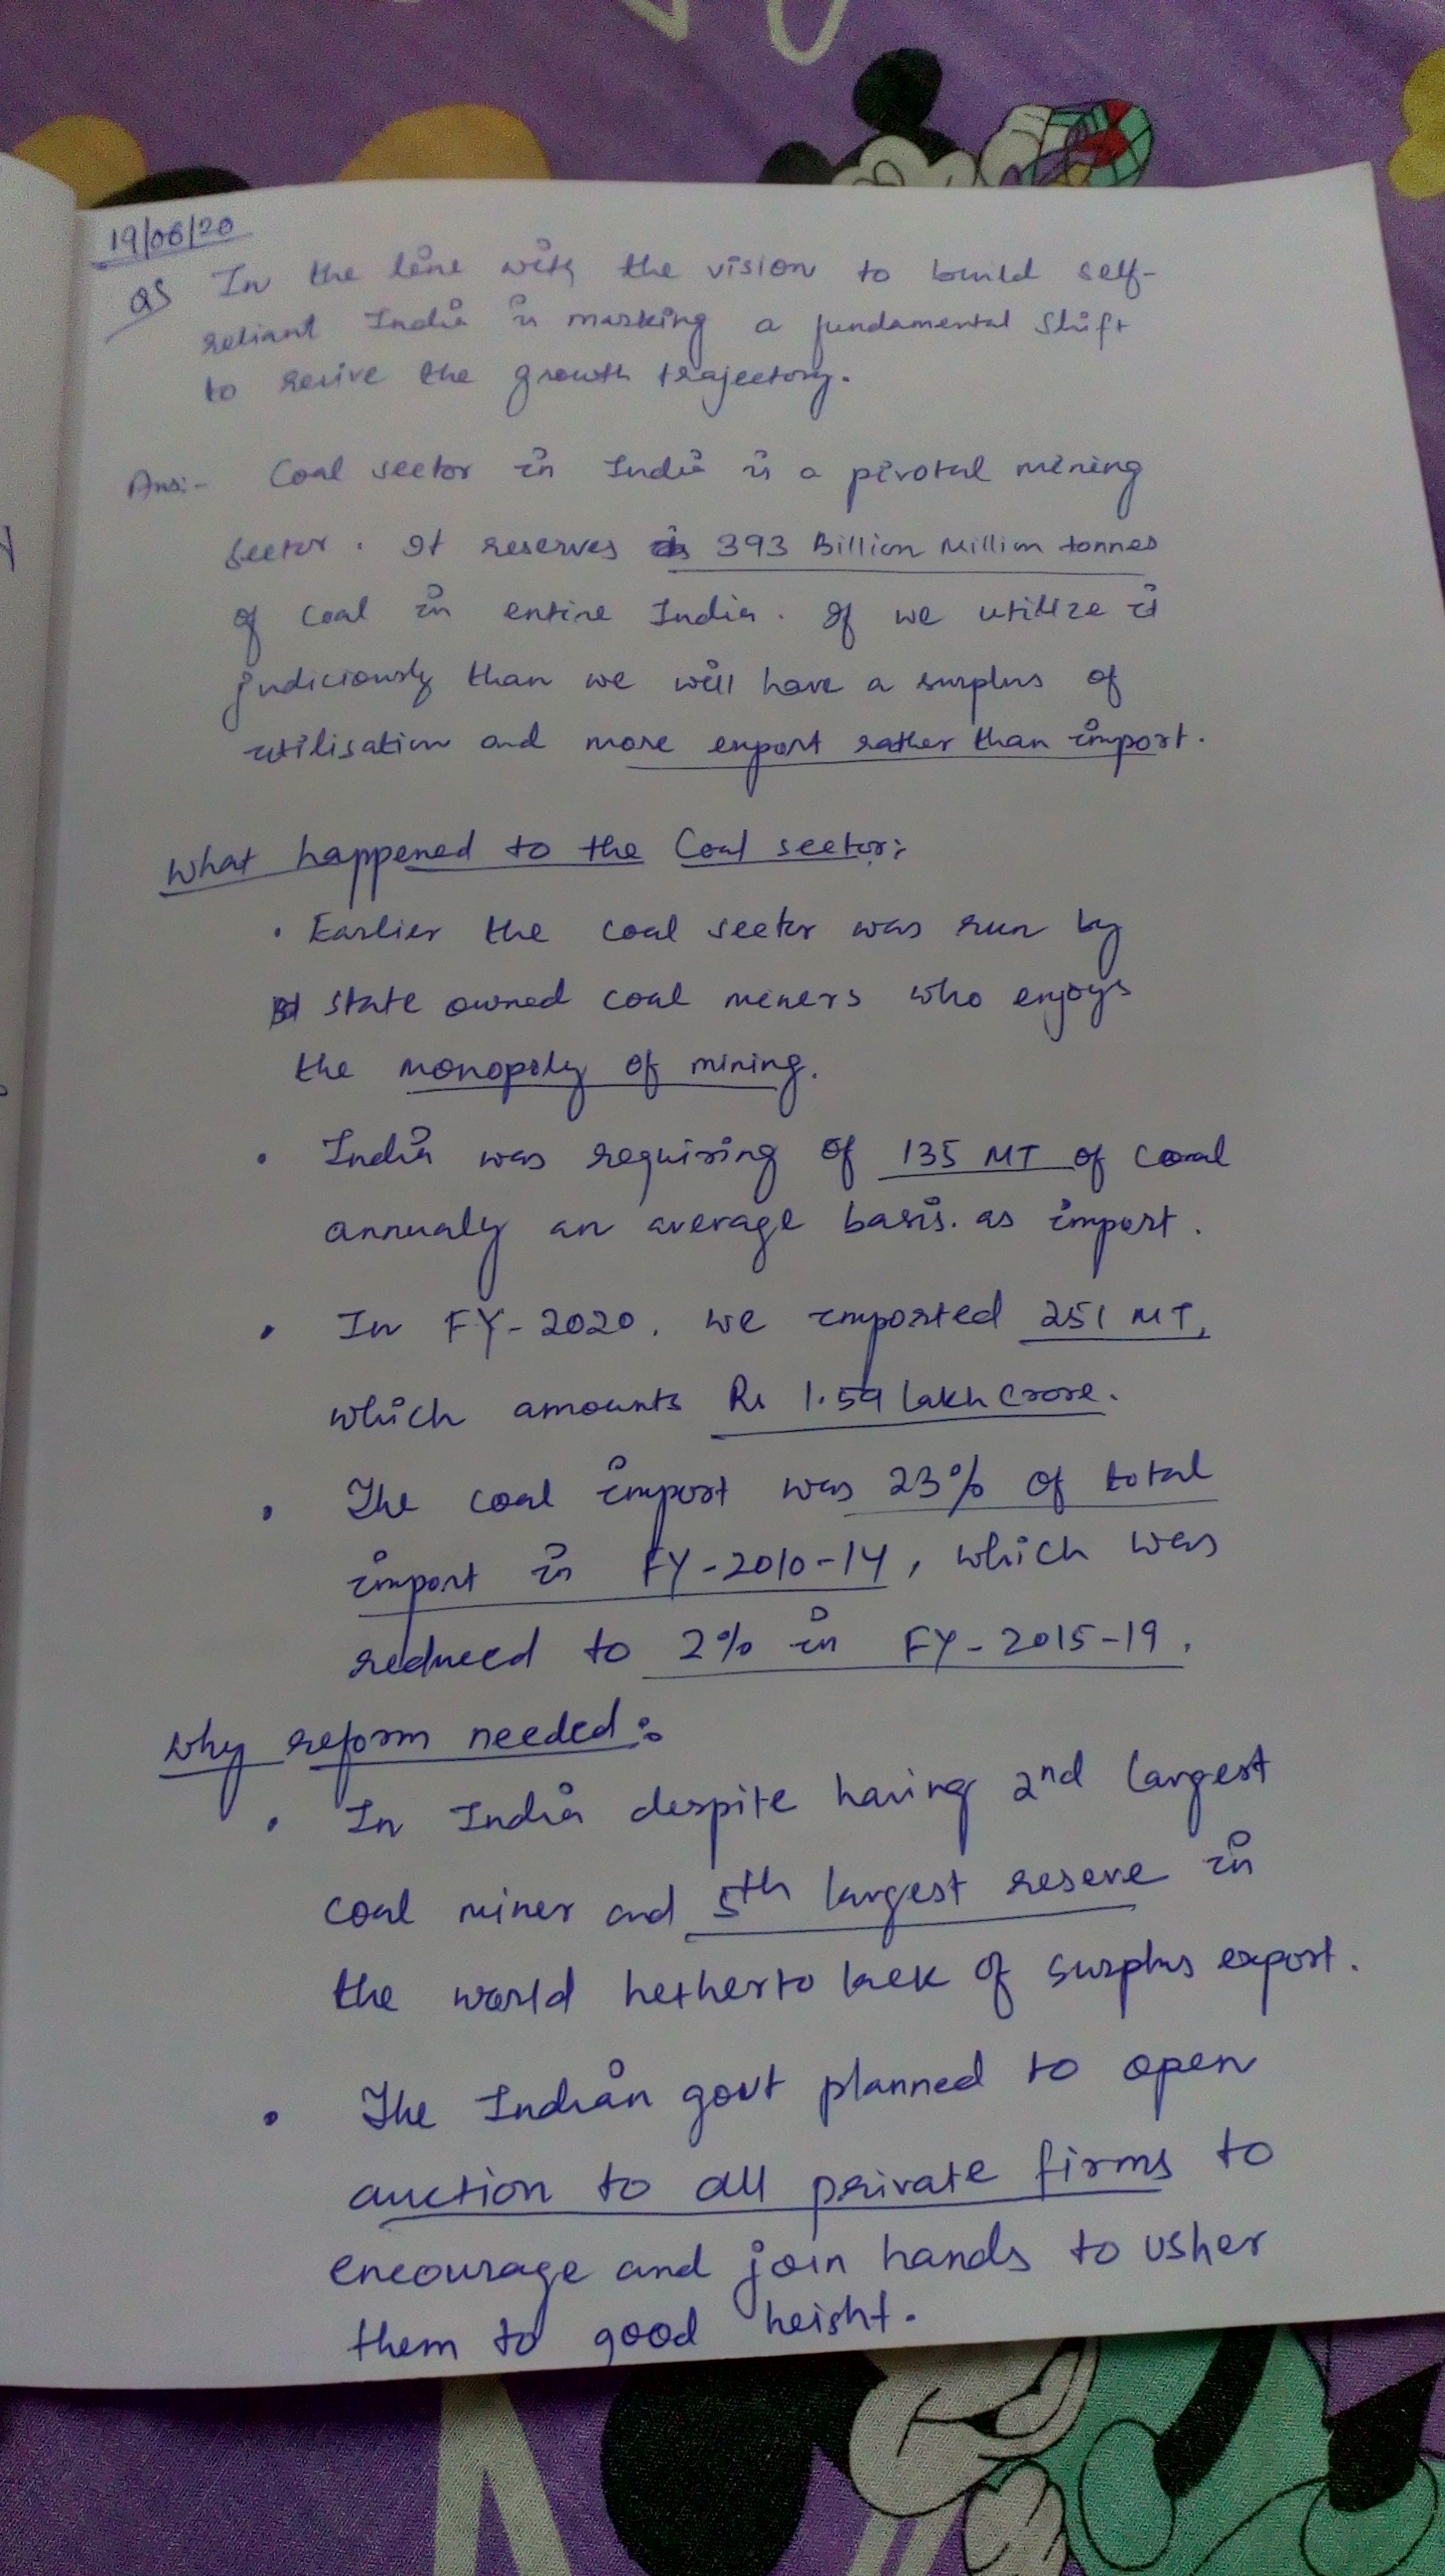 19/06/20
Q5 In the line with the vision to build self-
reliant India is marking a fundamental shift
to revive the growth trajectory.
Ans:- Coal sector in India is a pivotal mining
sector. It reserves 393 Billion Million tonnes
of coal in entire India. If we utilize it
judiciously than we will have a surplus of
utilisation and more export rather than import.
What happened to the Coal sector:
• Earlier the coal sector was run by
state owned coal miners who enjoys
the monopoly of mining.
• India was requiring of 135 MT of coal
annualy an average basis. as import.
• In FY-2020, we imported 251 MT,
which amounts Rs 1.59 lakh crore.
• The coal import was 23% of total
import in FY-2010-14, which was
reduced to 2% in FY-2015-19.
Why reform needed:
• In India despite having 2nd largest
coal miner and 5th largest reserve in
the world hetherto lack of surplus export.
• The Indian govt planned to open
auction to all private firms to
encourage and join hands to usher
them to good height.